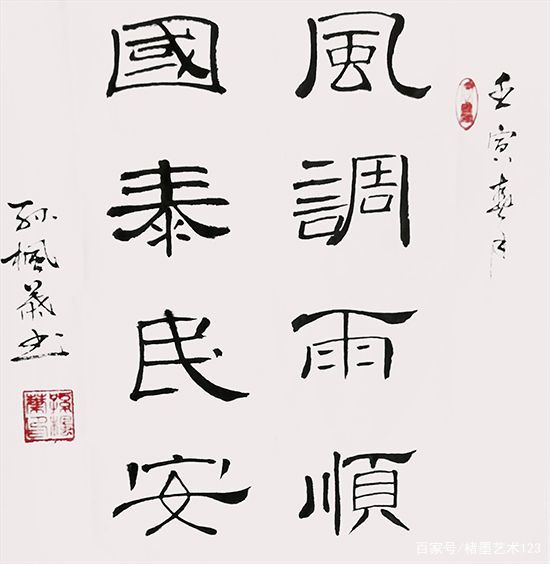 壬寅春月
風調雨順
國泰民安
孙枫葉书
百家号/楮墨艺术123